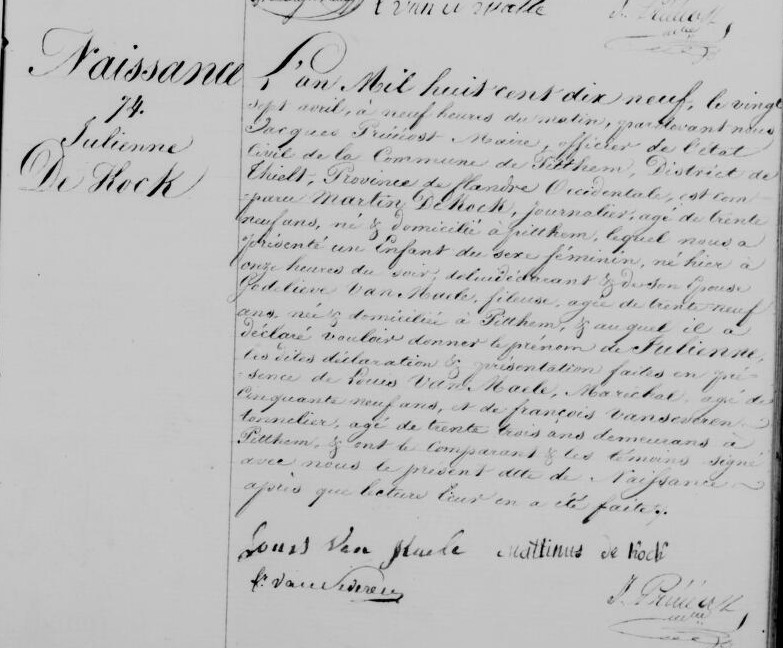 Van de Walle
Naissance
74.
Julienne
De Kock
L'an Mil huit cent dix neuf, le vingt
sept avril, à neuf heures du matin, pardevant nous
Jacques Maire, officier de l'état
Civil de la Commune de Pitthem, District de
Thielt, Province de flandre Occidentale, est com-
paru Martin De Kock, journalier, agé de trente
neuf ans, né & domicilié à pitthem, lequel nous a
présenté un Enfant du sexe féminin, né hier à
onze heures du soir, de lui déclarant & de son épouse
Godelieve Van Maele, fileuse, agée de trente neuf
ans, née & domiciliée à Pitthem, & auquel il a
déclaré vouloir donner le prénom de Julienne,
les dites déclaration & présentation faites en pré-
sence de Louis Van Maele, Maréchal, agé de
Cinquante neuf ans, et de françois vanseveren
tonnelier, agé de trente trois ans demeurans à
Pitthem, & ont le Comparant & les témoins signé
avec nous le présent acte de Naissance
après que lecture leur en a été faite.
Louis Van Maele Martinus de Kock
fr. vanseveren